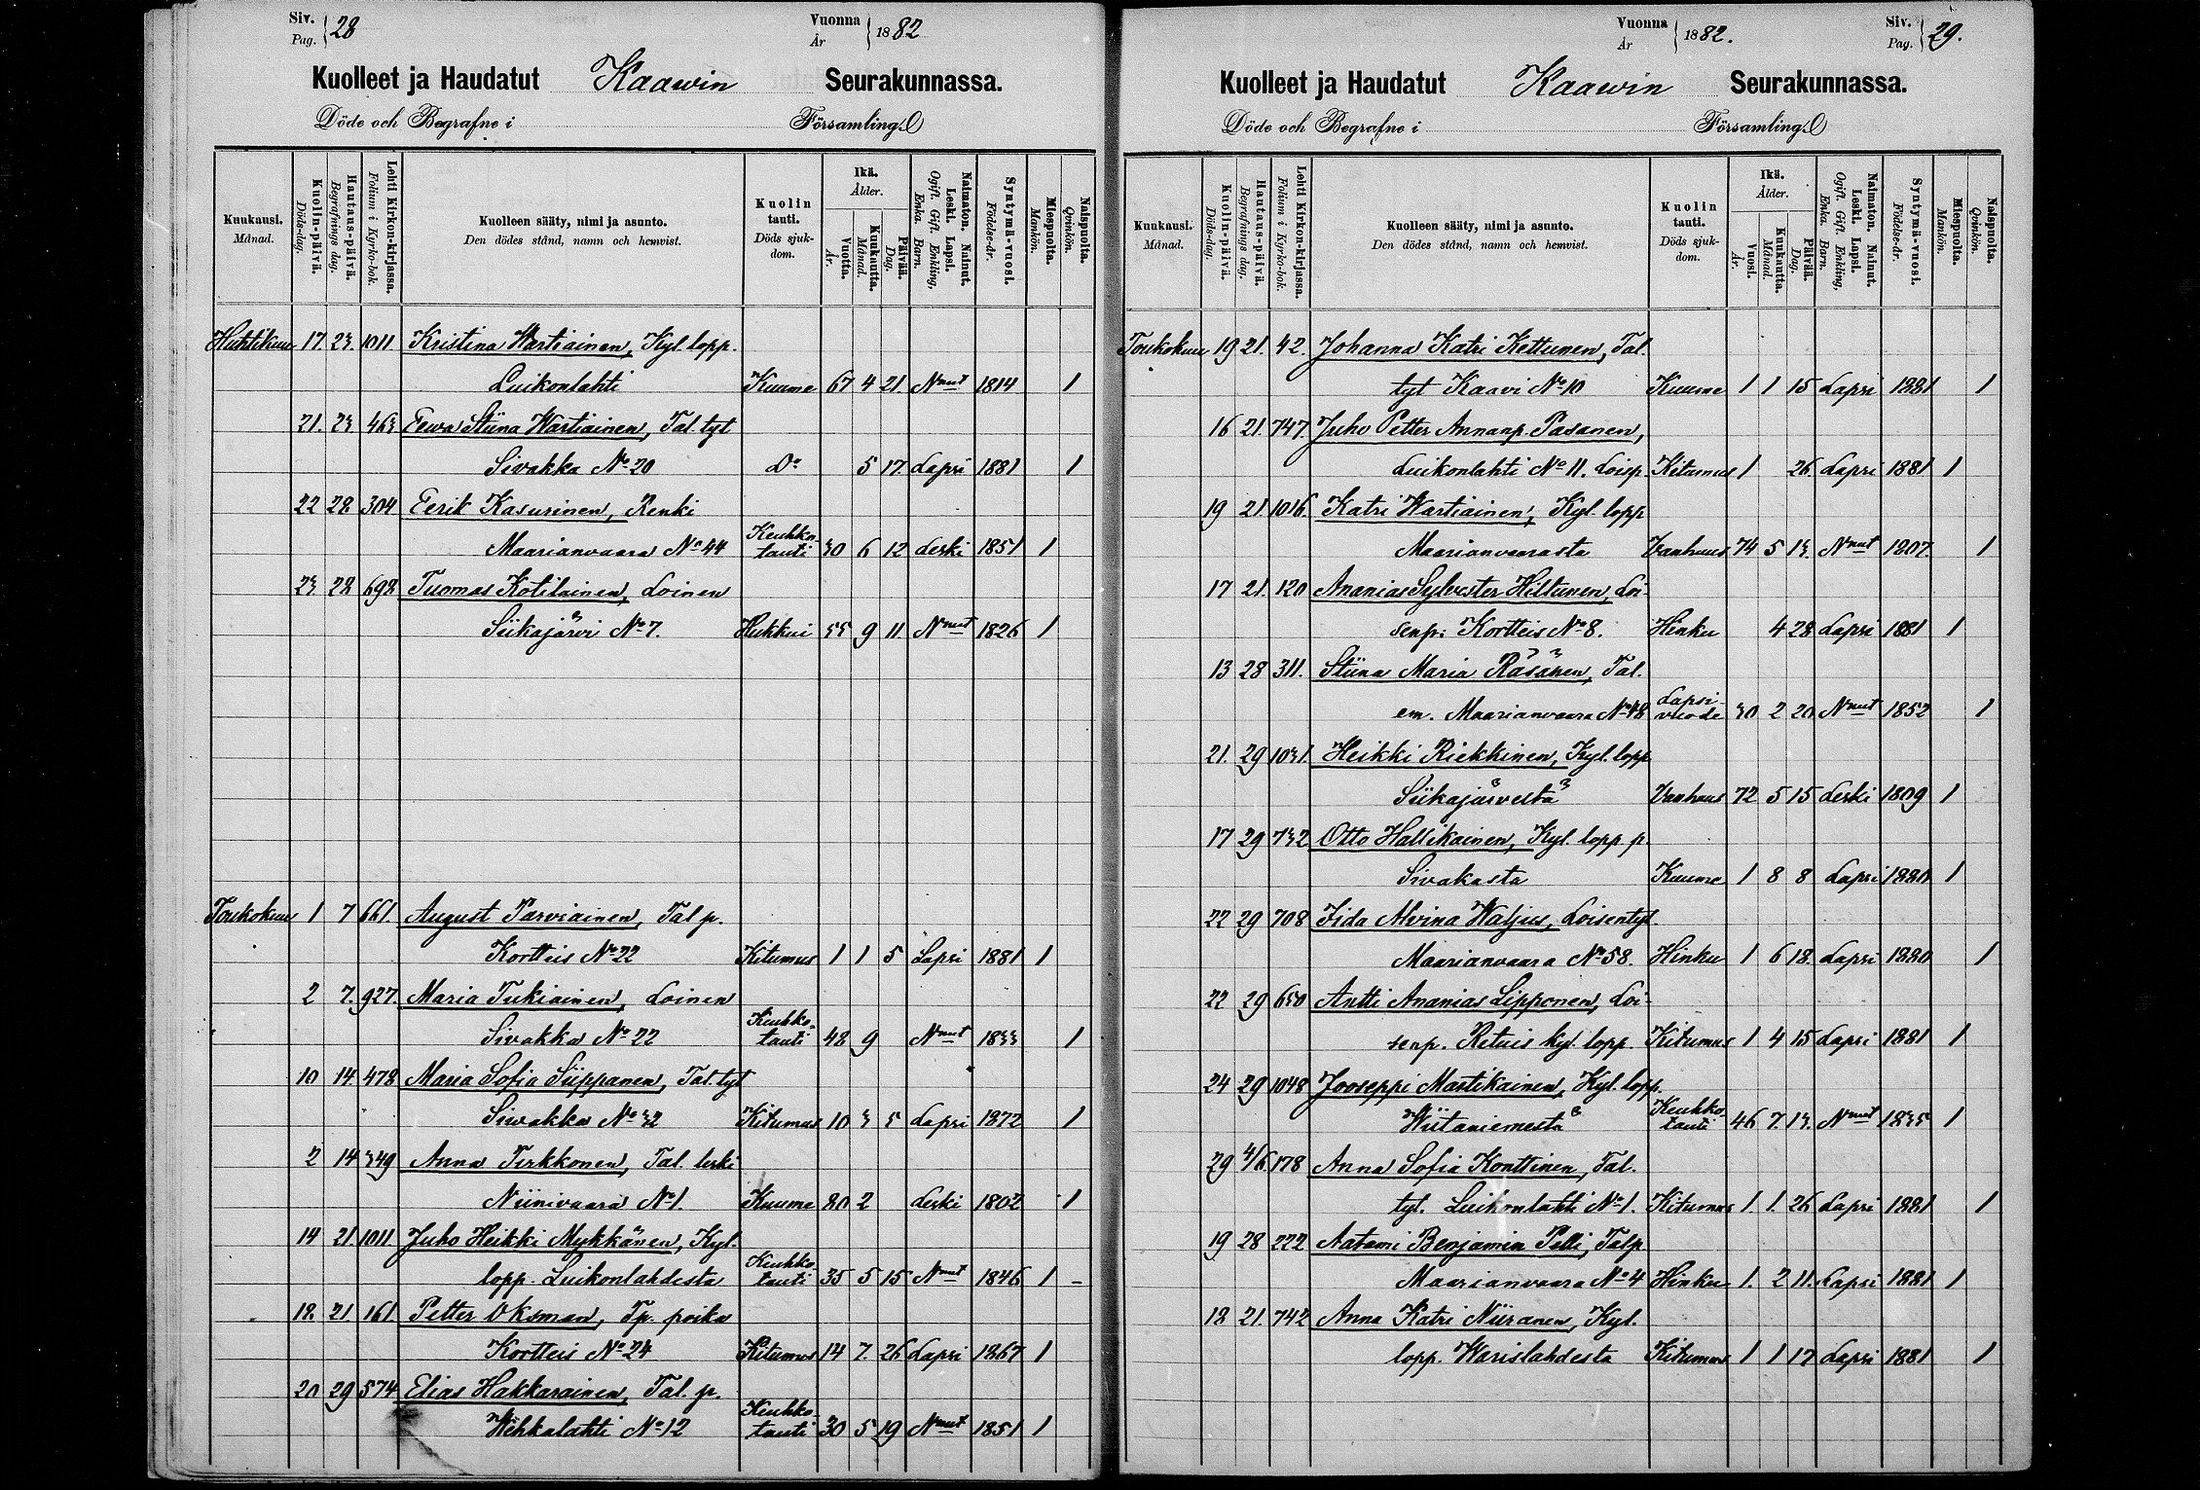 Siv. Pag. 28 Vuonna År 1882
Kuolleet ja Haudatut Kaawin Seurakunnassa.
Döde och Begrafne i Församling.
Kuukausi. Månad.
Kuolin-päivä. Döds-dag.
Hautaus-päivä. Begrafnings dag.
Lehti Kirkon-kirjassa. Folium i Kyrko-bok.
Kuolleen sääty, nimi ja asunto. Den dödes stånd, namn och hemvist.
Kuolin tauti. Döds sjukdom.
Ikä. Ålder.
Vuotta. År.
Kuukautta. Månad.
Päivää. Dag.
Naimaton. Nainut. Leski. Lapsi. Ogift. Gift. Enkling, Enka. Barn.
Syntymä-vuosi. Födelse-år.
Miespuolta. Mankön.
Naispuolta. Qvinkön.
Huhtikuu 17. 23. 1011 Kristina Wartiainen, Kyl. lopp.
Luikonlahti Kuume 67 4 21. Nnut 1814 1
21. 23. 463 Eewa Stiina Wartiainen, Tal. tyt
Sivakka No 20 Do 5 17. Lapsi 1881 1
22 28 304 Eerik Kasurinen, Renki
Maarianvaara No 44 Keuhko-tauti 30 6 12 Leski 1851 1
23 28 698 Tuomas Kotilainen, Loinen
Siikajärvi No 7. Hukkui 55 9 11. Nnut 1826 1
Toukokuu 1 7 661. August Parviainen, Tal p.
Kortteis No 22 Kitumus 1 1 5 Lapsi 1881 1
2 7. 927. Maria Tukiainen, Loinen
Sivakka No 22 Keuhko-tauti 48 9 Nnut 1833 1
10 14 478 Maria Sofia Siippanen, Tal. tyt
Sivakka No 32 Kitumus 10 3 5 Lapsi 1872 1
2 14 349 Anna Tirkkonen, Tal. leski
Niinivaara No 1. Kuume 80 2 Leski 1802 1
14 21. 1011 Juho Heikki Mykkänen, Kyl.
lopp. Luikonlahdesta Keuhko-tauti 35 5 15 Nnut 1846 1 -
18. 21. 161 Petter Oksman, Tp. poika
Kortteis No 24 Kitumus 14 7. 26 Lapsi 1867 1
20 29 574 Elias Hakkarainen, Tal. p.
Wehkalahti No 12 Keuhko-tauti 30 5 19 Nnut 1851 1
Vuonna År 1882. Siv. Pag. 29.
Kuolleet ja Haudatut Kaawin Seurakunnassa.
Döde och Begrafne i Församling.
Kuukausi. Månad.
Kuolin-päivä. Döds-dag.
Hautaus-päivä. Begrafnings dag.
Lehti Kirkon-kirjassa. Folium i Kyrko-bok.
Kuolleen sääty, nimi ja asunto. Den dödes stånd, namn och hemvist.
Kuolin tauti. Döds sjukdom.
Ikä. Ålder.
Vuosi. År.
Kuukautta. Månad.
Päivää. Dag.
Naimaton. Nainut. Leski. Lapsi. Ogift. Gift. Enkling, Enka. Barn.
Syntymä-vuosi. Födelse-år.
Miespuolta. Mankön.
Naispuolta. Qvinkön.
Toukokuu 19 21. 42. Johanna Katri Kettunen, Tal.
tyt Kaavi No 10 Kuume 1 1 15 Lapsi 1881 1
16 21. 747. Juho Petter Annanp. Pasanen,
Luikonlahti No 11. Loisp. Kitumus 1 26. Lapsi 1881 1
19 21. 1016. Katri Wartiainen, Kyl. lopp
Maarianvaarasta Vanhuus 74 5 13. Nnut 1807. 1
17 21. 120 Ananias Sylvester Hiltunen, Loi-
senp. Kortteis No 8. Hinku 4 28 Lapsi 1881 1
13 28 311. Stiina Maria Räsänen, Tal.
em. Maarianvaara No 48 Lapsi-vuode 30 2 20 Nnut 1852 1
21. 29 1031. Heikki Riekkinen, Kyl. lopp
Siikajärvestä Vanhuus 72 5 15 Leski 1809 1
17 29 732 Otto Hallikainen, Kyl. lopp p.
Sivakasta Kuume 1 8 8 Lapsi 1880 1
22 29 708 Iida Alvina Waljus, Loisentyt.
Maarianvaara No 58. Hinku 1 6 18. Lapsi 1880 1
22 29 650 Antti Ananias Lipponen, Loi-
senp. Retuis kyl. lopp. Kitumus 1 4 15 Lapsi 1881 1
24 29 1048 Jooseppi Martikainen, Kyl. lopp.
Wiitaniemestä Keuhko-tauti 46 7. 13. Nnut 1835 1
29 4/6 178 Anna Sofia Konttinen, Tal.
tyt. Luikonlahti No 1. Kitumus 1. 1. 26 Lapsi 1881 1
19 28 222 Aatami Benjamin Pelli, Talp
Maarianvaara No 4 Hinku 1. 2 11. Lapsi 1881 1
18 21. 742 Anna Katri Niiranen, Kyl.
lopp. Warislahdesta Kitumus 1 1 17 Lapsi 1881 1